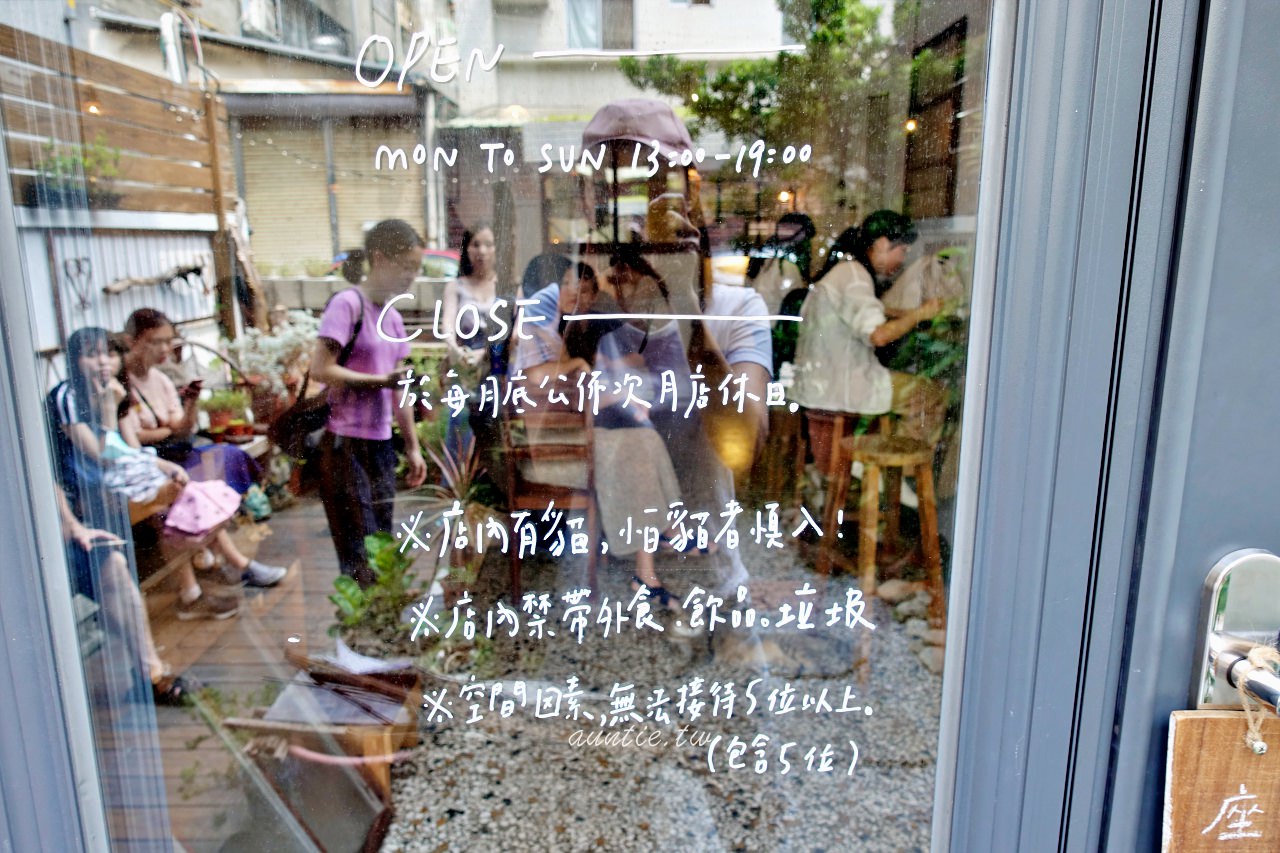 OPEN
MON TO SUN 13:00-19:00
CLOSE
於每月底公佈次月店休日。
※店內有貓,怕貓者慎入!
※店內禁帶外食.飲品。垃圾
※空間因素,無法接待5位以上。
auntie.tw
(包含5位)
座